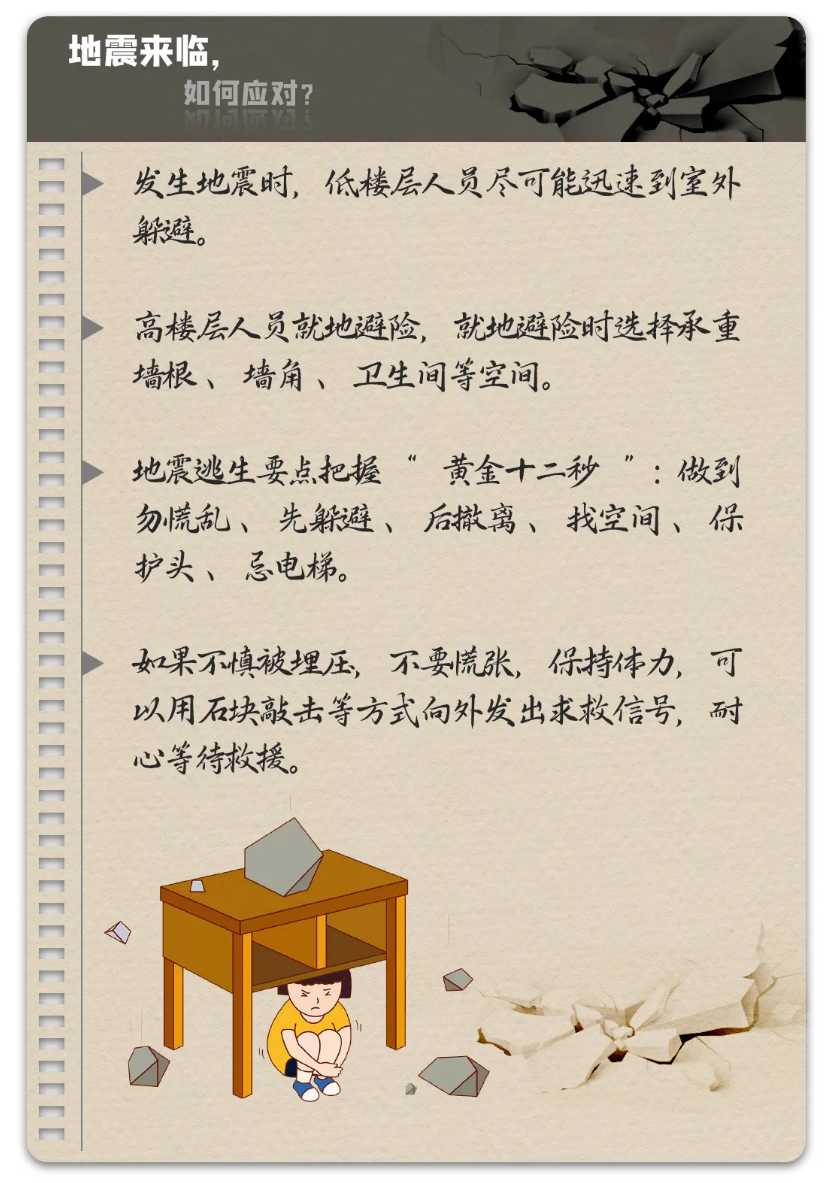 地震来临，
如何应对？
发生地震时，低楼层人员尽可能迅速到室外
躲避。
高楼层人员就地避险，就地避险时选择承重
墙根、墙角、卫生间等空间。
地震逃生要点把握“黄金十二秒”：做到
勿慌乱、先躲避、后撤离、找空间、保
护头、忌电梯。
如果不慎被埋压，不要慌张，保持体力，可
以用石块敲击等方式向外发出求救信号，耐
心等待救援。